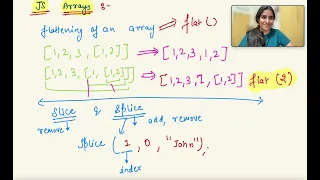 JS Arrays :-
flattening of an array ⇒ flat()
[1,2,3,[1,2]] ⇒ [1,2,3,1,2]
[1,2,3,[1,[1,2]]] ⇒ [1,2,3,1,[1,2]] flat(2)
Slice & Splice
remove add, remove
Splice (1, 0, "John");
index